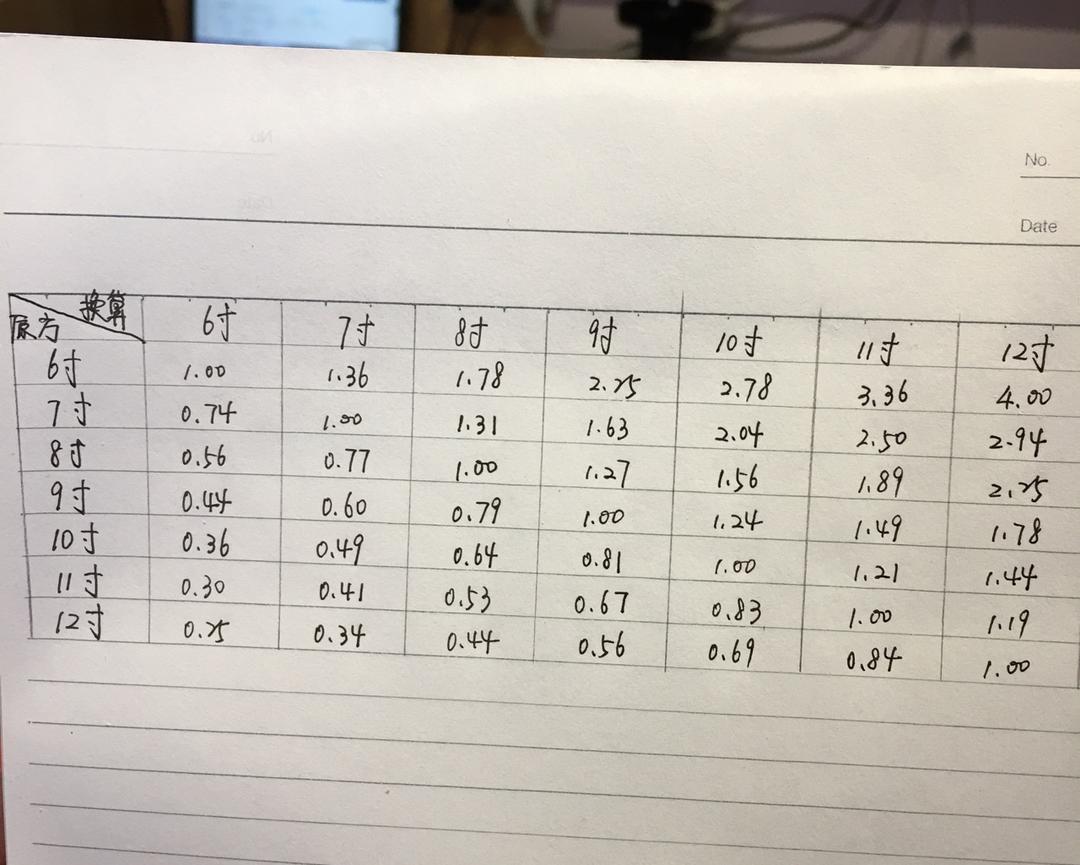 No.
Date
换算 6寸 7寸 8寸 9寸 10寸 11寸 12寸
原方
6寸 1.00 1.36 1.78 2.25 2.78 3.36 4.00
7寸 0.74 1.00 1.31 1.63 2.04 2.50 2.94
8寸 0.56 0.77 1.00 1.27 1.56 1.89 2.25
9寸 0.44 0.60 0.79 1.00 1.24 1.49 1.78
10寸 0.36 0.49 0.64 0.81 1.00 1.21 1.44
11寸 0.30 0.41 0.53 0.67 0.83 1.00 1.19
12寸 0.25 0.34 0.44 0.56 0.69 0.84 1.00